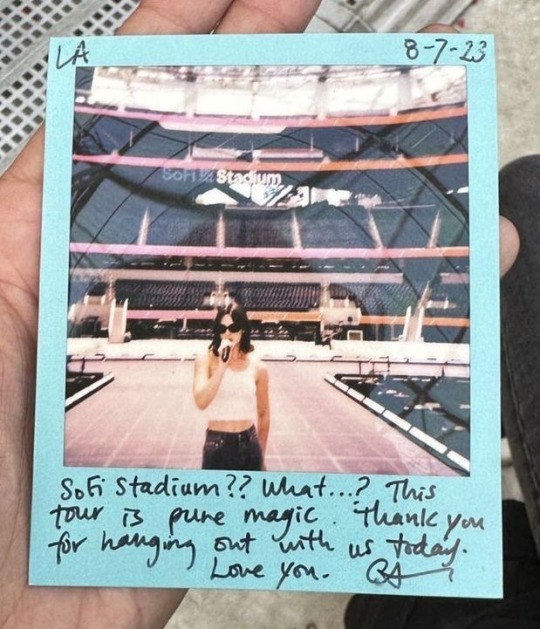 LA
8-7-23
SoFi Stadium
SoFi Stadium?? What...? This
tour is pure magic. Thank you
for hanging out with us today.
Love you. GA